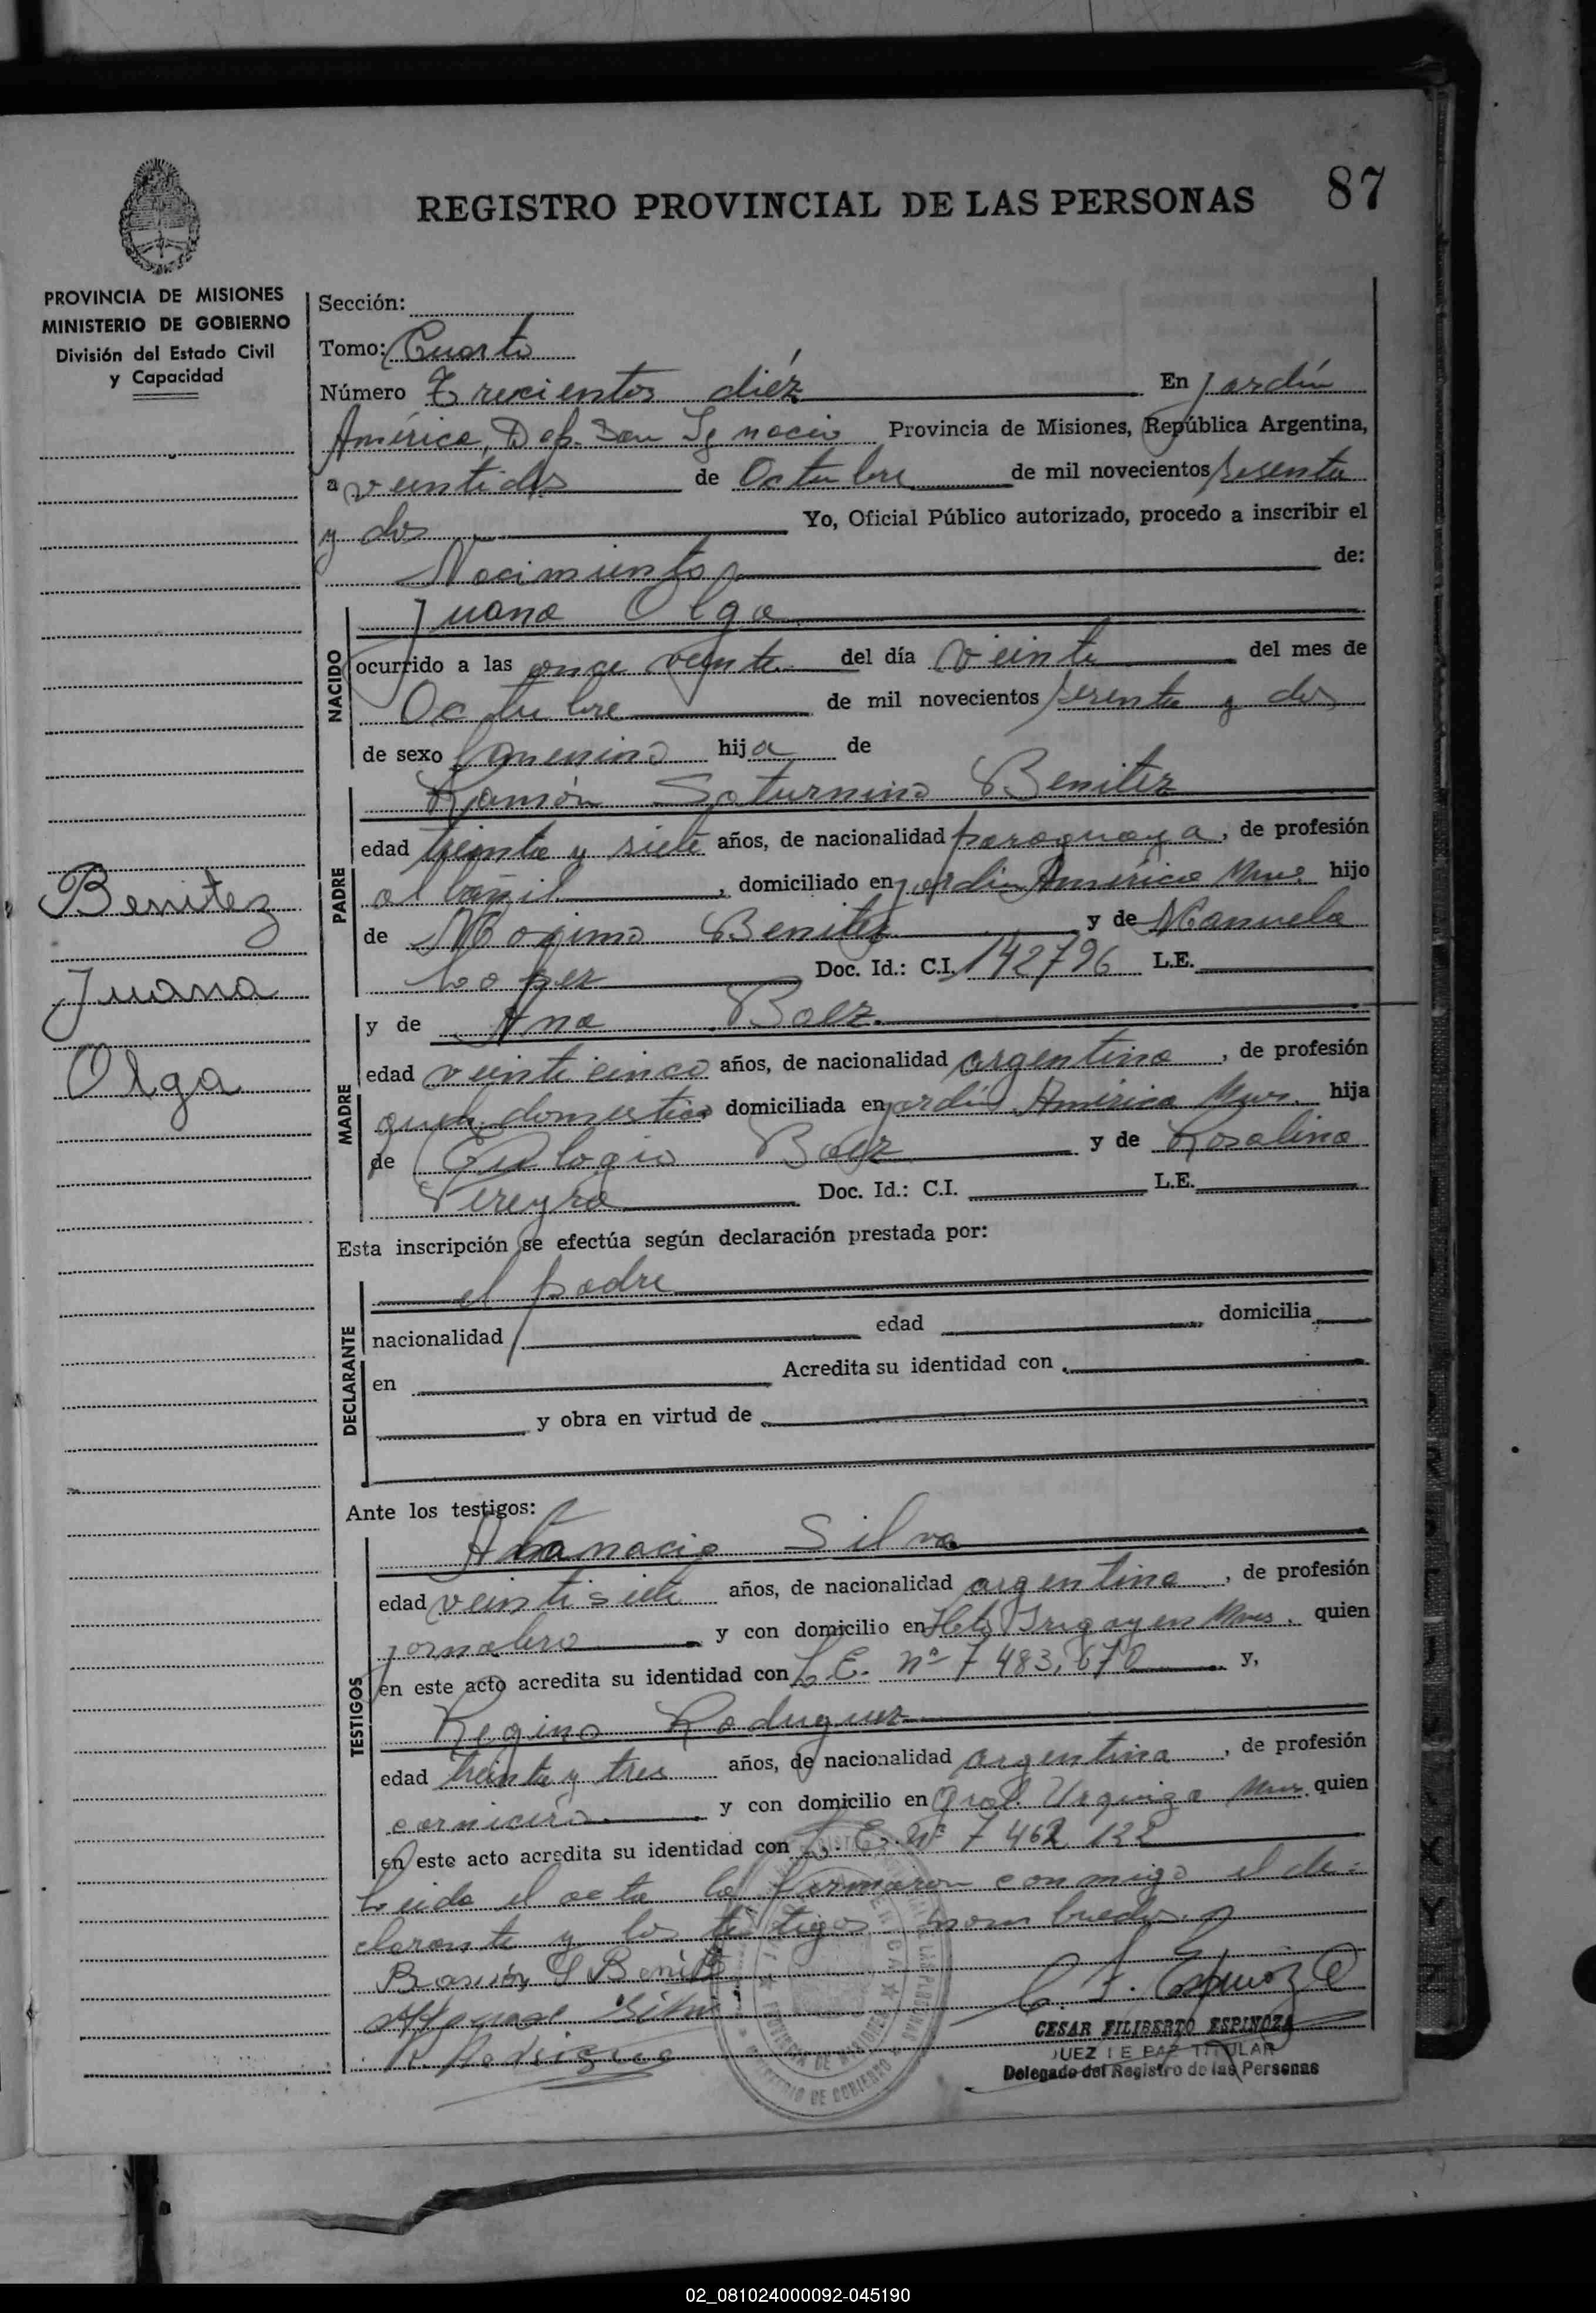 REGISTRO PROVINCIAL DE LAS PERSONAS 87
PROVINCIA DE MISIONES
MINISTERIO DE GOBIERNO
División del Estado Civil
y Capacidad
Benitez
Juana
Olga
Sección:
Tomo: Cuarto
Número Trecientos diéz En Jardín
América, Dep. San Ignacio Provincia de Misiones, República Argentina,
a veintidos de Octubre de mil novecientos sesenta
y dos Yo, Oficial Público autorizado, procedo a inscribir el
Nacimiento de:
NACIDO
Juana Olga
ocurrido a las once veinte del día veinte del mes de
Octubre de mil novecientos sesenta y dos
de sexo femenino hija de
PADRE
Ramón Saturnino Benitez
edad treinta y siete años, de nacionalidad paraguaya, de profesión
albañil, domiciliado en jardin América Mnes hijo
de Maximo Benitez y de Manuela
Lopez Doc. Id.: C.I. 142796 L.E.
MADRE
y de Ana Baez
edad veinticinco años, de nacionalidad argentina, de profesión
queh. domestico domiciliada en jardín América Mnes. hija
de Eulogio Baez y de Rosalina
Pereyra Doc. Id.: C.I. L.E.
Esta inscripción se efectúa según declaración prestada por:
DECLARANTE
el padre
nacionalidad edad domicilia
en Acredita su identidad con
y obra en virtud de
Ante los testigos:
TESTIGOS
Atanacio Silva
edad veintisiete años, de nacionalidad argentina, de profesión
jornalero y con domicilio en Hto Irigoyen Mnes. quien
en este acto acredita su identidad con L.E. nº 7 483.670 y,
Regino Rodriguez
edad treinta y tres años, de nacionalidad argentina, de profesión
carnicero y con domicilio en Gral. Urquiza Mnes quien
en este acto acredita su identidad con L.E. Nº 7 462 122
Leida el acta la firmaron conmigo el de-
clarante y los testigos nombrados.
Ramón S Benitez
Silva
C. F. Espinoza
CESAR FILIBERTO ESPINOZA
JUEZ DE PAZ TITULAR
Delegado del Registro de las Personas
02_081024000092-045190